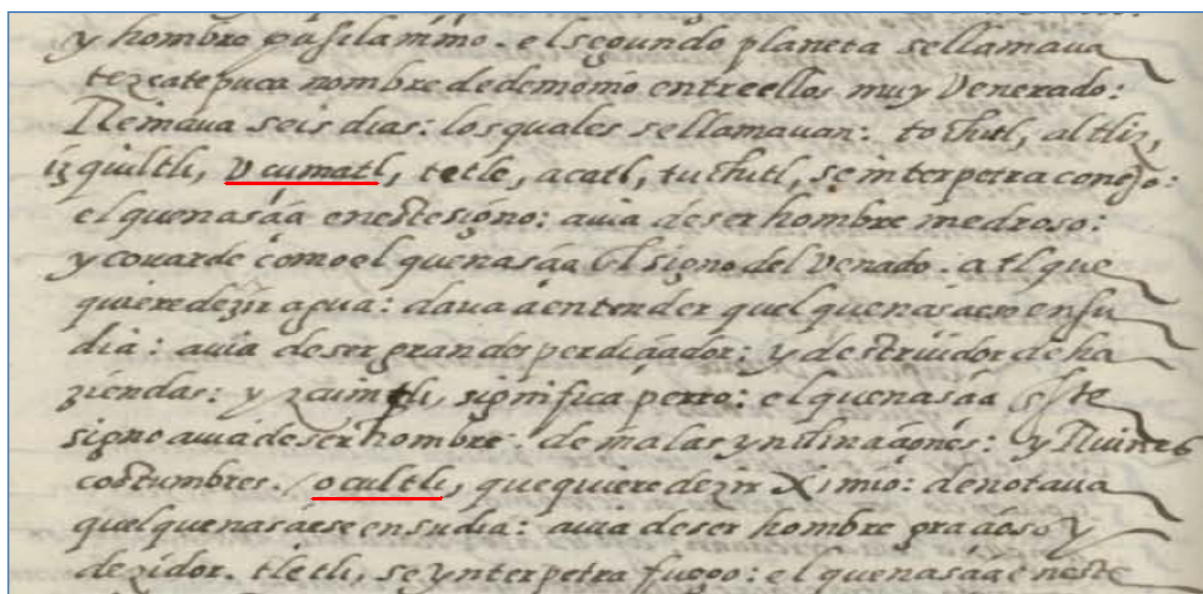 y hombre pusilanimo. el segundo planeta sellamaua
tezcatepuca nombre dedemonio entreellos muy Venerado:
Reinaua seis dias: losquales sellamauan: tochitl, altliz,
izquiultli, Vcumatl, tetle, acatl, tuchitl, seinterpetra conejo:
elquenasçia enestesigno: auia deser hombre medroso:
y couarde como el quenasçia El signo del Venado. atl que
quieredezir agua: daua aentender quelquenasçiese ensu
dia: auia deser grandesperdiçiador: y destruidor de ha
ziendas: yzcuintli, significa perro: elquenasçia este
signo auia deser hombre de malas ynclinaçiones: y Ruines
costumbres. ocultli, quequiere dezir Ximio: denotaua
quelquenasçiese ensudia: auia deser hombre graçioso y
dezidor. tletli, se ynterpetra fuego: elquenasçia eneste